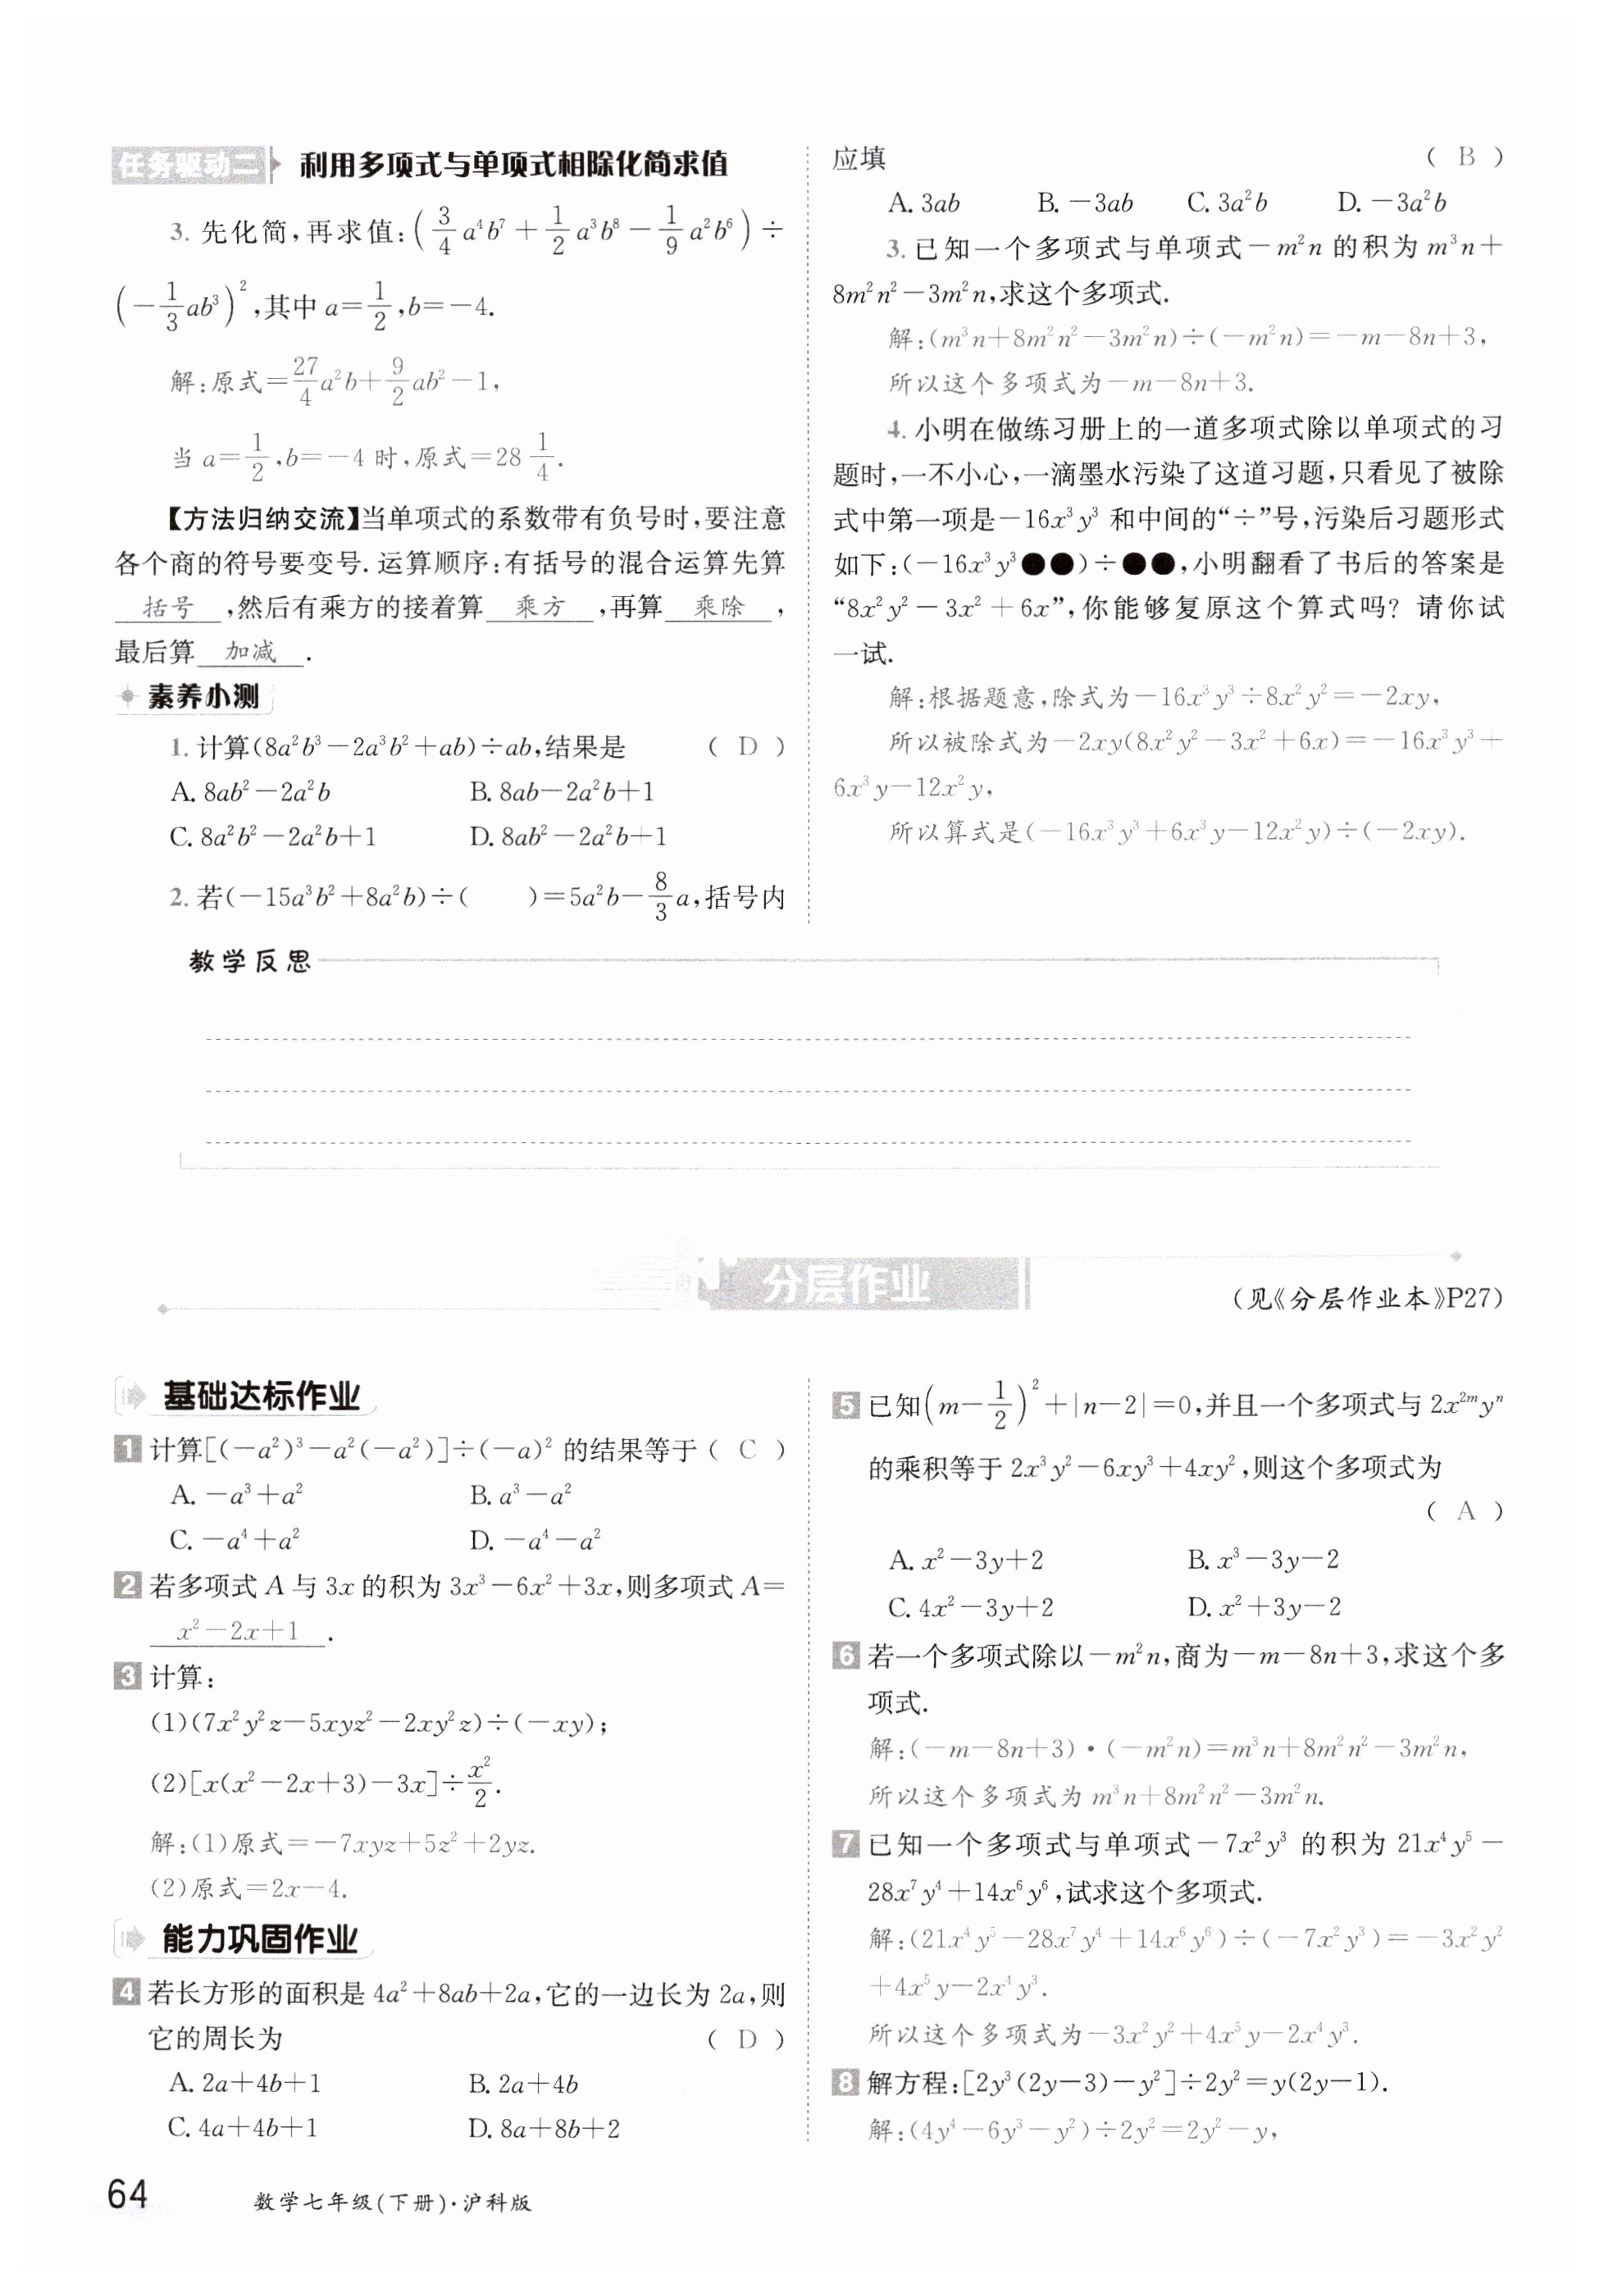 任务驱动二 利用多项式与单项式相除化简求值
3. 先化简,再求值:(3/4 a⁴b⁷+1/2 a³b⁸-1/9 a²b⁶)÷
(-1/3 ab³)²,其中 a=1/2,b=-4.
解:原式=27/4 a²b+9/2 ab²-1,
当 a=1/2,b=-4 时,原式=28 1/4.
【方法归纳交流】当单项式的系数带有负号时,要注意
各个商的符号要变号. 运算顺序:有括号的混合运算先算
括号,然后有乘方的接着算 乘方,再算 乘除,
最后算 加减.
素养小测
1. 计算(8a²b³-2a³b²+ab)÷ab,结果是 ( D )
A. 8ab²-2a²b B. 8ab-2a²b+1
C. 8a²b²-2a²b+1 D. 8ab²-2a²b+1
2. 若(-15a³b²+8a²b)÷( )=5a²b-8/3 a,括号内
应填 ( B )
A. 3ab B. -3ab C. 3a²b D. -3a²b
3. 已知一个多项式与单项式-m²n 的积为 m³n+
8m²n²-3m²n,求这个多项式.
解:(m³n+8m²n²-3m²n)÷(-m²n)=-m-8n+3,
所以这个多项式为-m-8n+3.
4. 小明在做练习册上的一道多项式除以单项式的习
题时,一不小心,一滴墨水污染了这道习题,只看见了被除
式中第一项是-16x³y³ 和中间的“÷”号,污染后习题形式
如下:(-16x³y³●●)÷●●,小明翻看了书后的答案是
“8x²y²-3x²+6x”,你能够复原这个算式吗? 请你试
一试.
解:根据题意,除式为-16x³y³÷8x²y²=-2xy,
所以被除式为-2xy(8x²y²-3x²+6x)=-16x³y³+
6x³y-12x²y,
所以算式是(-16x³y³+6x³y-12x²y)÷(-2xy).
教学反思
分层作业
(见《分层作业本》P27)
基础达标作业
1 计算[(-a²)³-a²(-a²)]÷(-a)² 的结果等于 ( C )
A. -a³+a² B. a³-a²
C. -a⁴+a² D. -a⁴-a²
2 若多项式 A 与 3x 的积为 3x³-6x²+3x,则多项式 A=
x²-2x+1.
3 计算:
(1)(7x²y²z-5xyz²-2xy²z)÷(-xy);
(2)[x(x²-2x+3)-3x]÷x²/2.
解:(1)原式=-7xyz+5z²+2yz.
(2)原式=2x-4.
能力巩固作业
4 若长方形的面积是 4a²+8ab+2a,它的一边长为 2a,则
它的周长为 ( D )
A. 2a+4b+1 B. 2a+4b
C. 4a+4b+1 D. 8a+8b+2
5 已知(m-1/2)²+|n-2|=0,并且一个多项式与 2x²ᵐyⁿ
的乘积等于 2x³y²-6xy³+4xy²,则这个多项式为
( A )
A. x²-3y+2 B. x³-3y-2
C. 4x²-3y+2 D. x²+3y-2
6 若一个多项式除以-m²n,商为-m-8n+3,求这个多
项式.
解:(-m-8n+3)·(-m²n)=m³n+8m²n²-3m²n,
所以这个多项式为 m³n+8m²n²-3m²n.
7 已知一个多项式与单项式-7x²y³ 的积为 21x⁴y⁵-
28x⁷y⁴+14x⁶y⁶,试求这个多项式.
解:(21x⁴y⁵-28x⁷y⁴+14x⁶y⁶)÷(-7x²y³)=-3x²y²
+4x⁵y-2x⁴y³.
所以这个多项式为-3x²y²+4x⁵y-2x⁴y³.
8 解方程:[2y³(2y-3)-y²]÷2y²=y(2y-1).
解:(4y⁴-6y³-y²)÷2y²=2y²-y,
64 数学七年级(下册)·沪科版